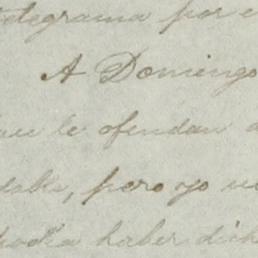 telegrama por e
A Domingo
que le ofendan a
daba, pero yo no
podia haber dich